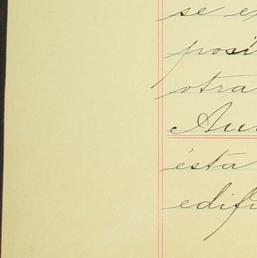 se e
posi
otra
Au
ésta
edifi